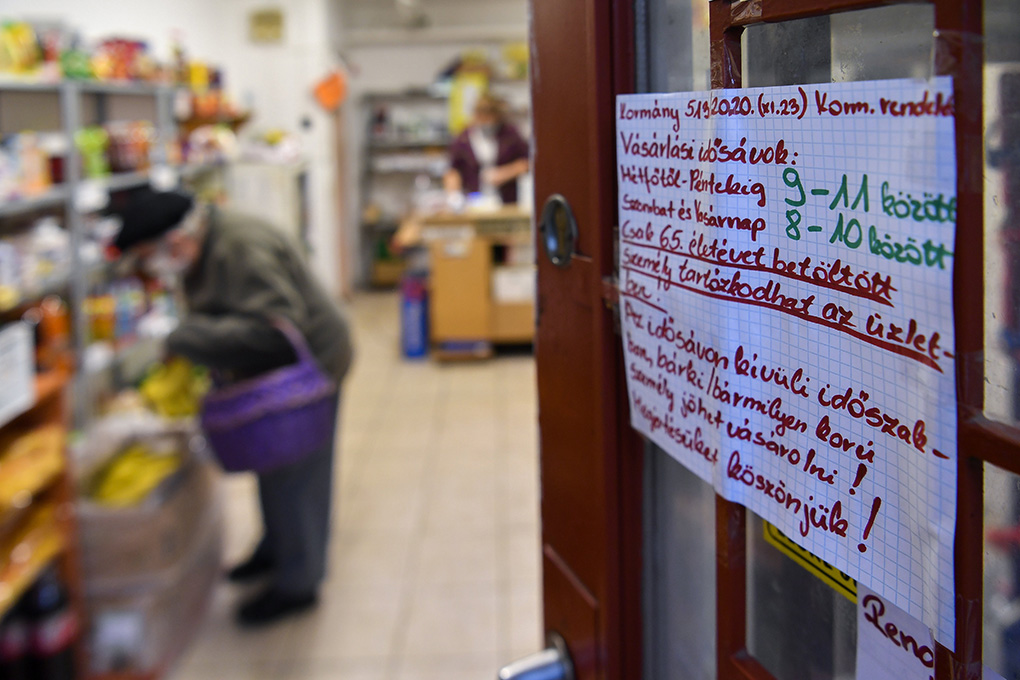 Kormány 513/2020. (XI.23) Korm. rendele
Vásárlási idősávok:
Hétfőtől-Péntekig 9-11 között
Szombat és Vasárnap 8-10 között
Csak 65. életévet betöltött
személy tartózkodhat az üzlet-
ben.
Az idősávon kívüli időszak-
ban, bárki/bármilyen korú
személy jöhet vásárolni!
Megértésüket köszönjük!
Rend